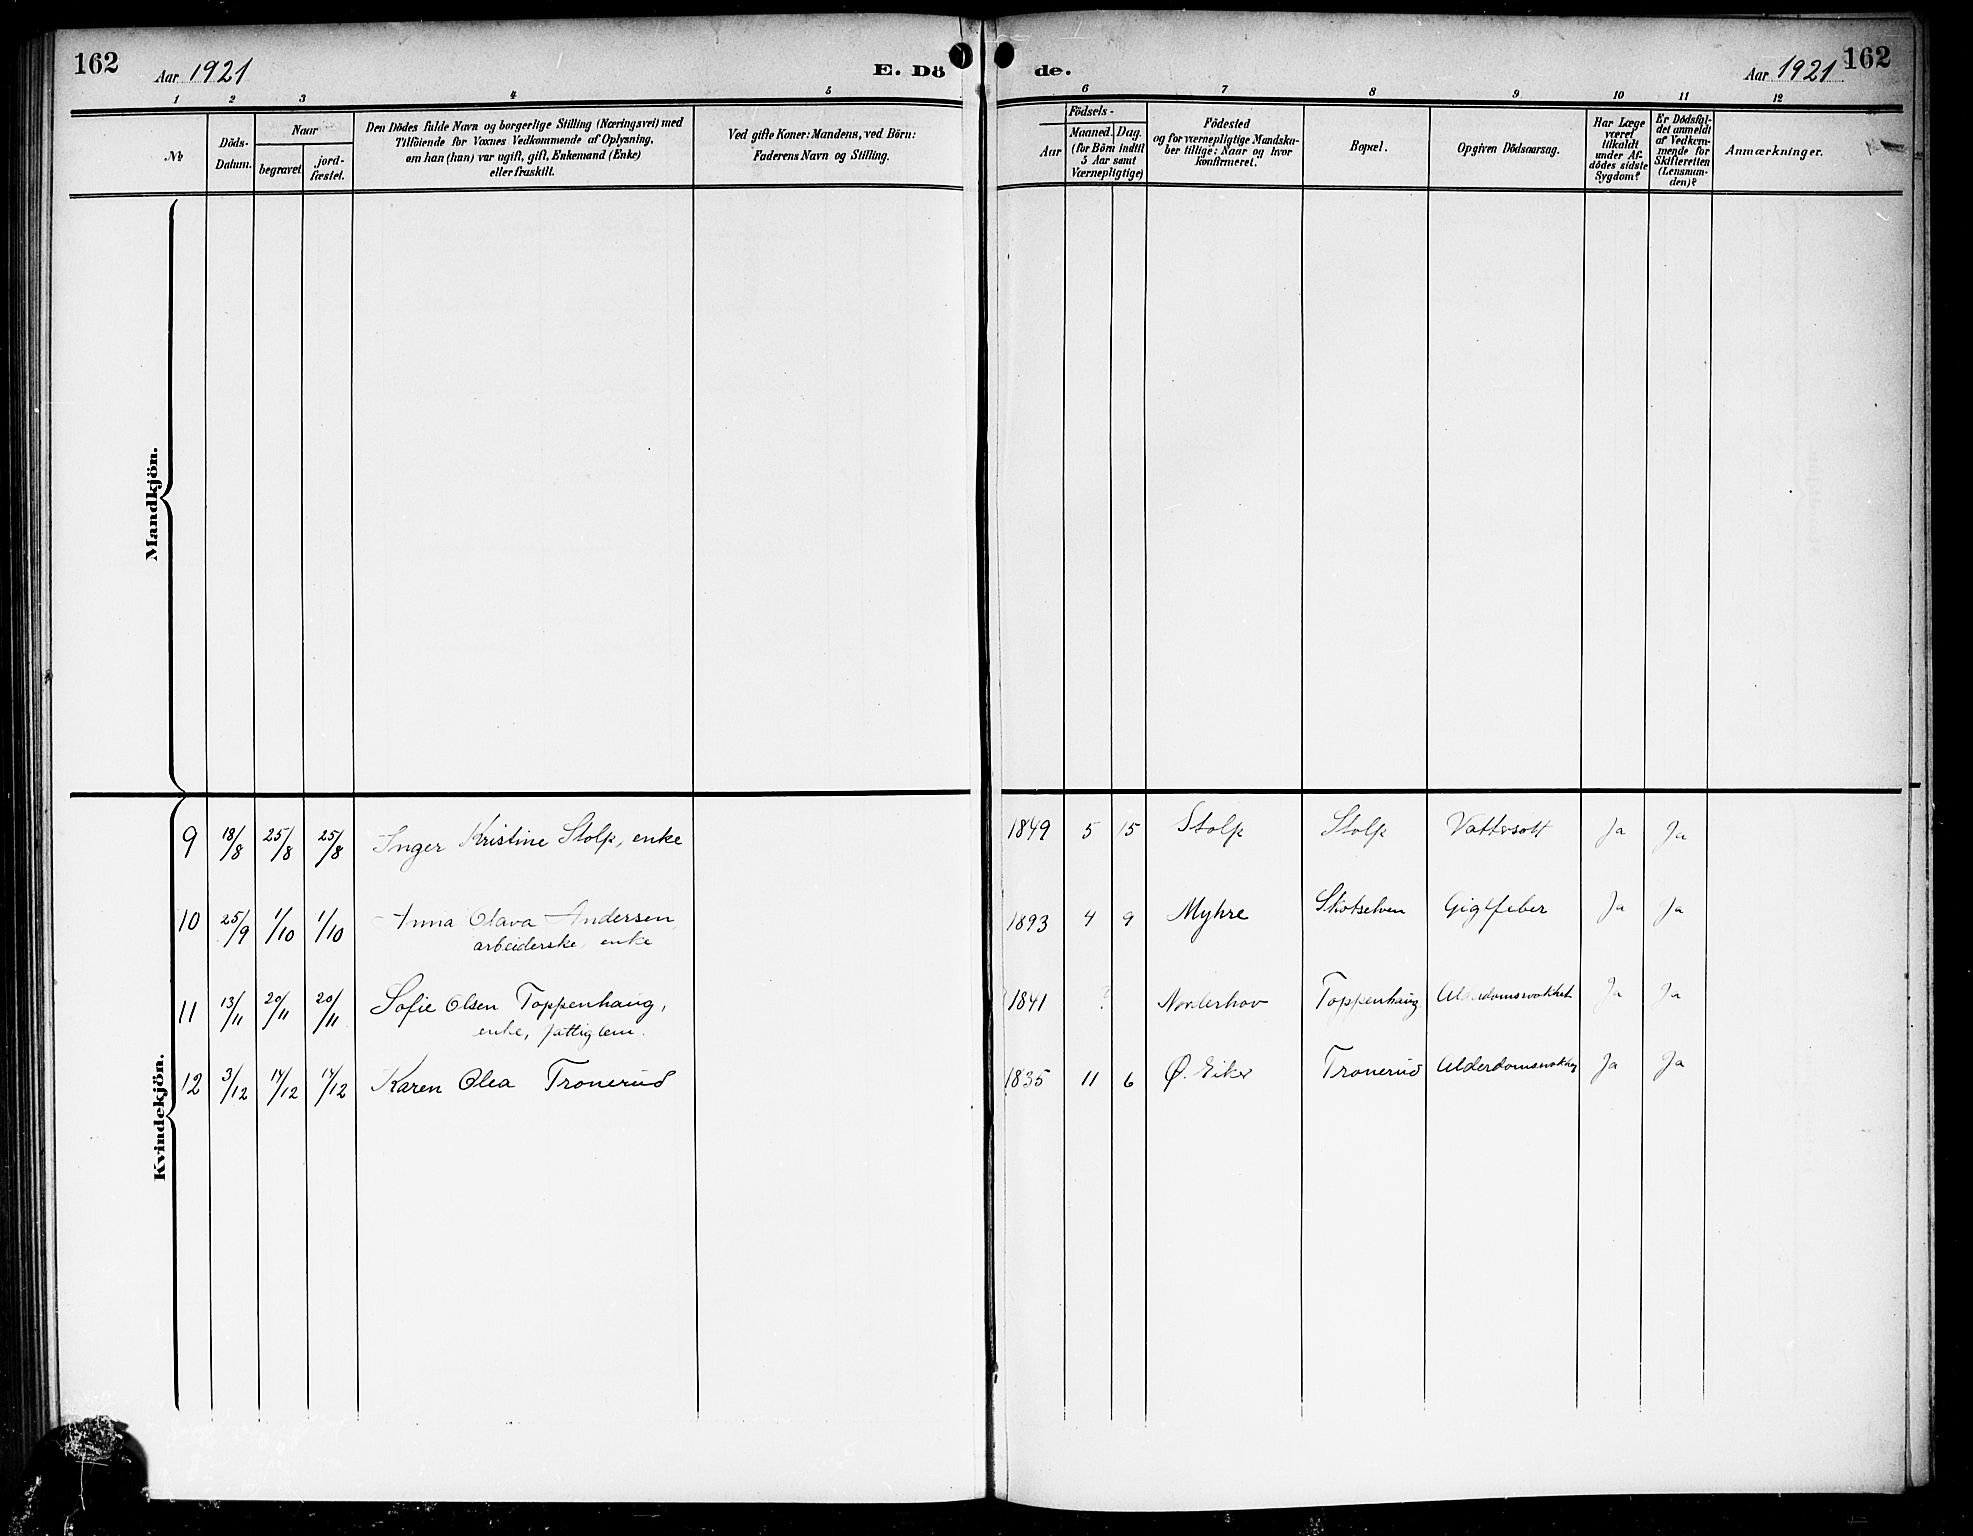 162
Aar 1921
E. Dö
de.
Aar 1921
162
1 2 3 4 5
6 7 8 9 10 11 12
№
Döds-
Datum.
Naar
begravet
jord-
fæstet.
Den Dödes fulde Navn og borgerlige Stilling (Næringsvei) med
Tilföiende for Voxnes Vedkommende af Oplysning,
om han (hun) var ugift, gift, Enkemand (Enke)
eller fraskilt.
Ved gifte Koner: Mandens, ved Börn:
Faderens Navn og Stilling.
Födsels-
Aar
Maaned. Dag.
(for Börn indtil
5 Aar samt
Værnepligtige)
Födested
og for værnepligtige Mandska-
ber tillige: Naar og hvor
konfirmeret.
Bopæl.
Opgiven Dödsaarsag.
Har Læge
været
tilkaldt
under Af-
dödes sidste
Sygdom?
Er Dödsfal-
det anmeldt
af Vedkom-
mende for
Skifteretten
(Lensman-
den)?
Anmærkninger.
Mandkjön.
Kvindekjön.
9 18/8 25/8 25/8 Inger Kristine Stolp, enke 1849 5 15 Stolp Stolp Vattersott Ja Ja
10 25/9 1/10 1/10 Anna Olava Andersen, 1893 4 9 Myhre Skotselven Gigtfeber Ja Ja
arbeiderske, enke
11 13/11 20/11 20/11 Sofie Olsen Toppenhaug, 1841 ? Norderhov Toppenhaug Alderdomssvakhet Ja Ja
enke, fattiglem.
12 3/12 14/12 14/12 Karen Olea Tronerud 1835 11 6 Ø. Eiker Tronerud Ja Ja